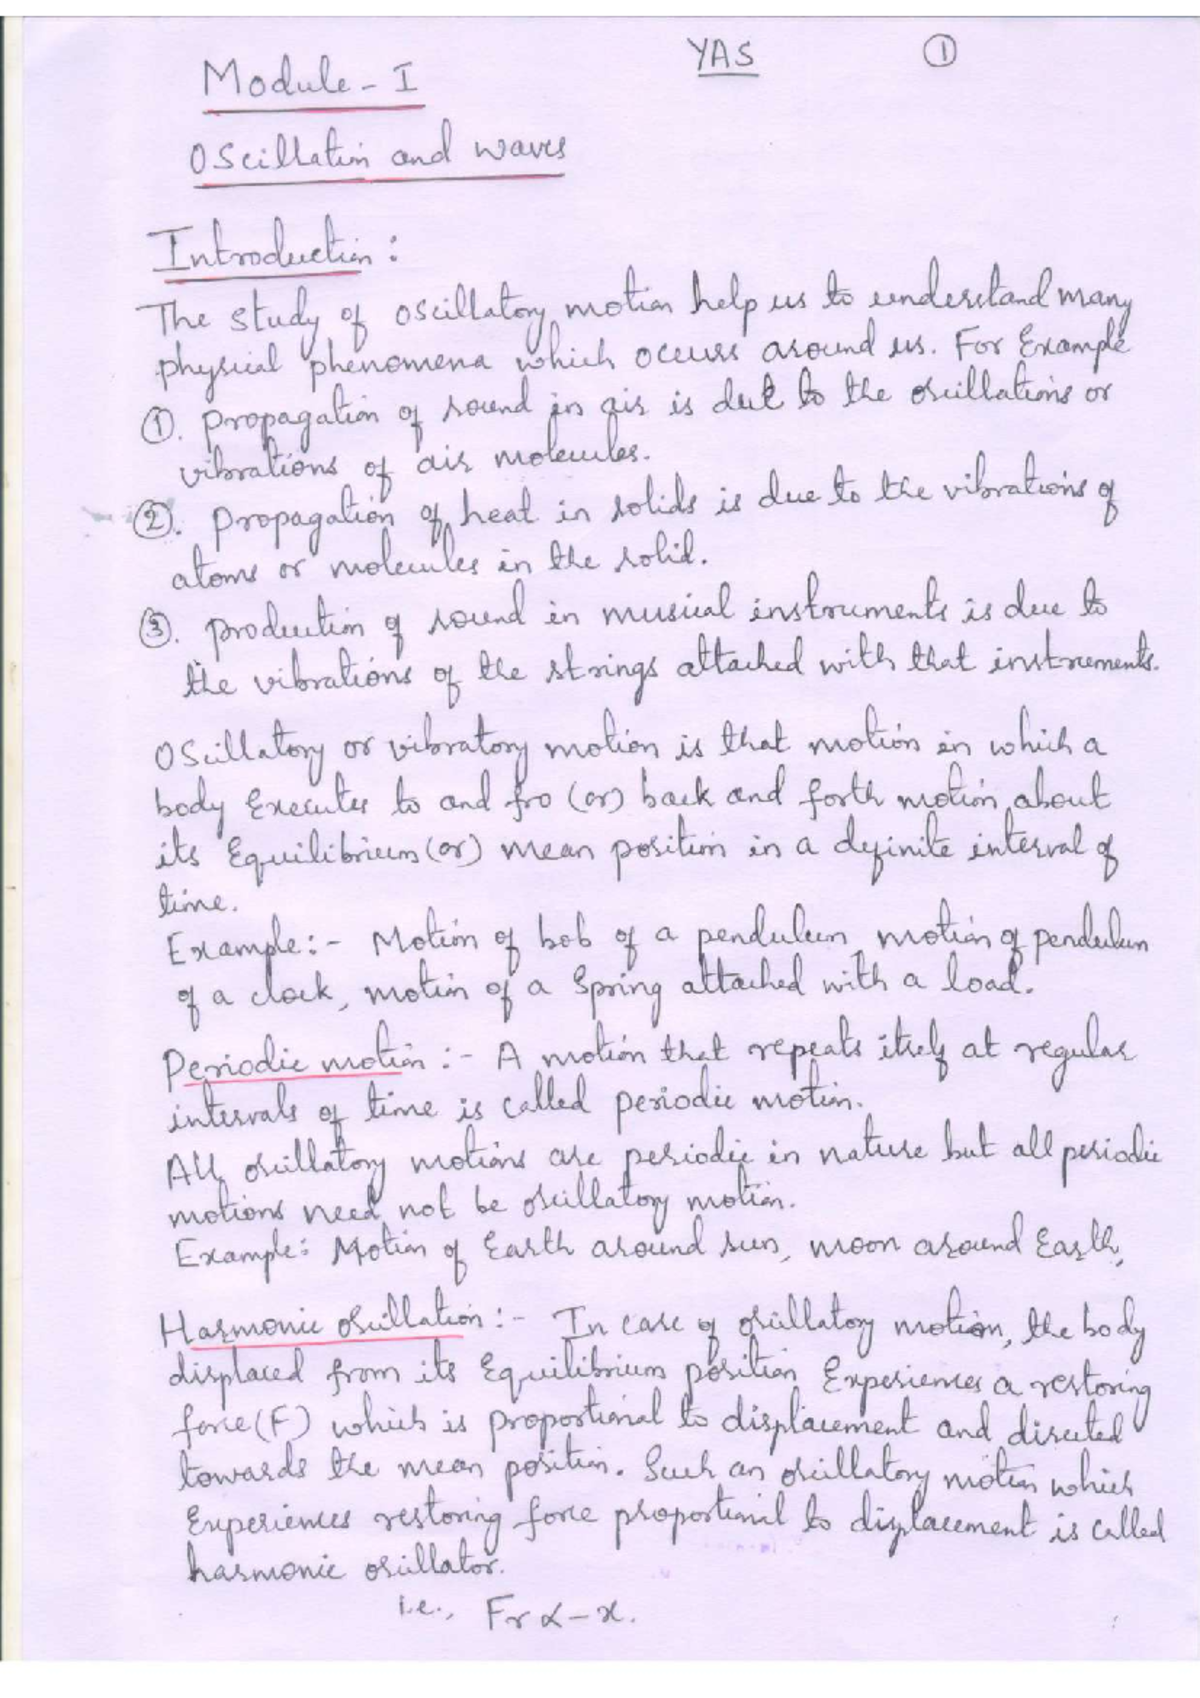 YAS ①
Module - I
Oscillation and waves
Introduction :
The study of oscillatory motion help us to understand many
physical phenomena which occurs around us. For Example
①. propagation of sound in air is due to the oscillations or
vibrations of air molecules.
②. propagation of heat in solids is due to the vibrations of
atoms or molecules in the solid.
③. production of sound in musical instruments is due to
the vibrations of the strings attached with that instruments.
Oscillatory or vibratory motion is that motion in which a
body Executes to and fro (or) back and forth motion about
its Equilibrium (or) mean position in a definite interval of
time.
Example :- Motion of bob of a pendulum, motion of pendulum
of a clock, motion of a spring attached with a load.
Periodic motion :- A motion that repeats itself at regular
intervals of time is called periodic motion.
All oscillatory motions are periodic in nature but all periodic
motions need not be oscillatory motion.
Example: Motion of Earth around sun, moon around Earth,
Harmonic oscillation :- In case of oscillatory motion, the body
displaced from its Equilibrium position Experiences a restoring
force (F) which is proportional to displacement and directed
towards the mean position. Such an oscillatory motion which
Experiences restoring force proportional to displacement is called
harmonic oscillator.
i.e., Fr ∝ - x.